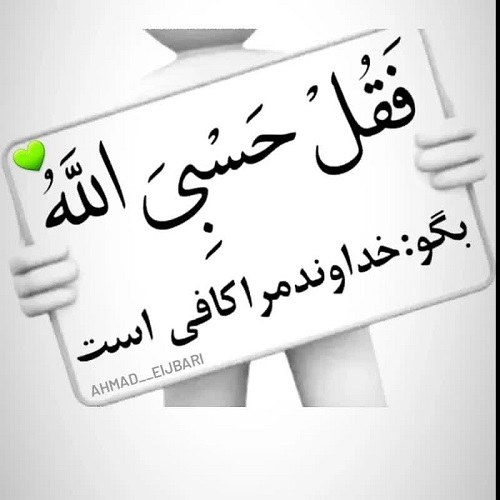 فَقُلْ حَسْبِيَ اللَّهُ
بگو:خداوندمراکافی است
AHMAD__EIJBARI